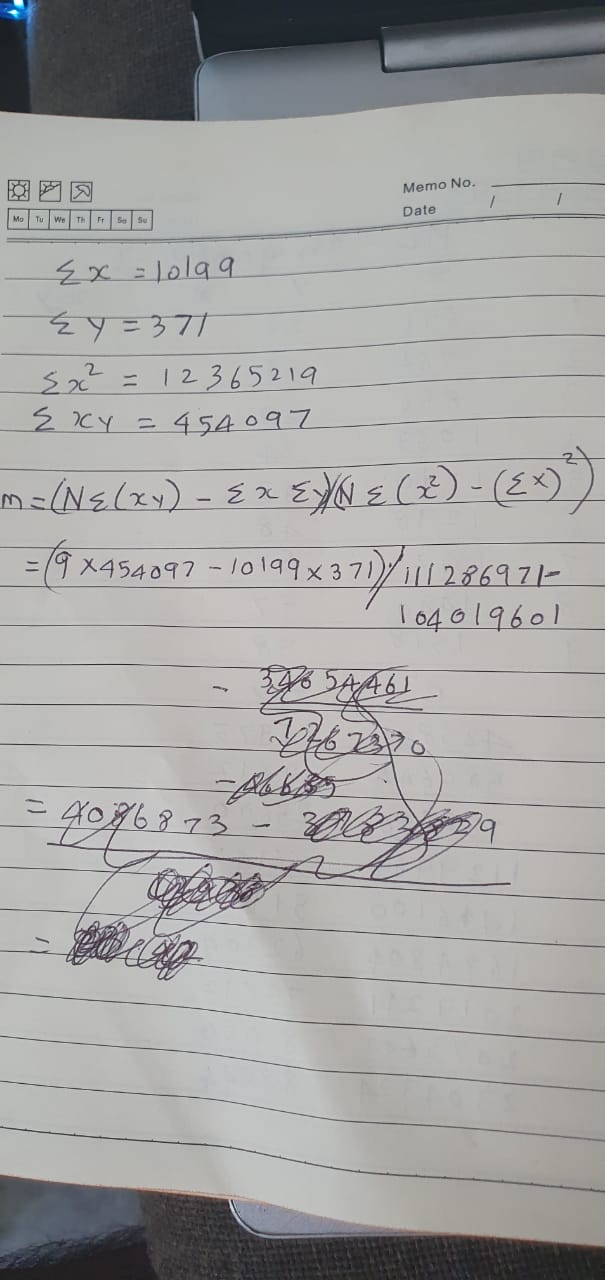 Memo No.
Mo Tu We Th Fr Sa Su
Date / /
Σx = 10199
ΣY = 371
Σx² = 12365219
Σxy = 454097
m = (NΣ(xy) - Σx Σy)/(NΣ(x²) - (Σx)²)
= (9 x 454097 - 10199 x 371)/111286971-
104019601
- 34654461
= 4086873 -
=